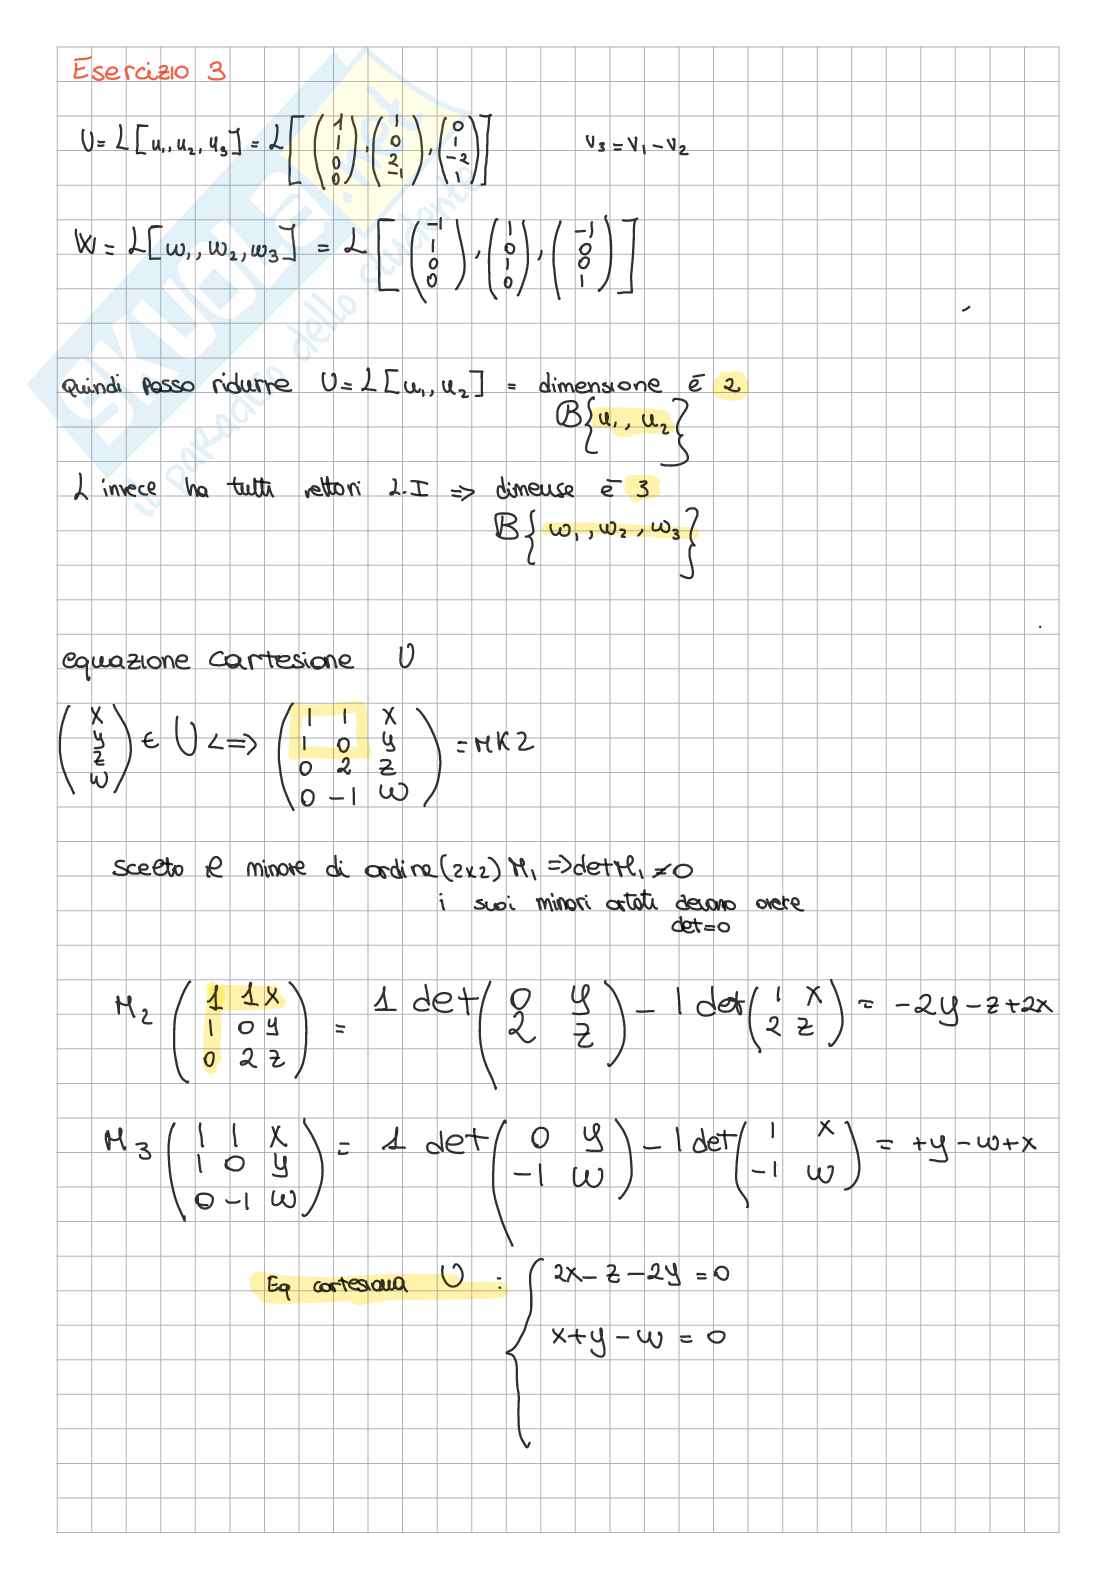 Esercizio 3
U = L[u₁, u₂, u₃] = L[(1 1 0 0), (1 0 2 -1), (0 1 -2 1)] v₃ = v₁ - v₂
W = L[w₁, w₂, w₃] = L[(-1 1 0 0), (1 0 1 0), (-1 0 0 1)]
Quindi posso ridurre U = L[u₁, u₂] = dimensione è 2
B{u₁, u₂}
L invece ha tutti vettori L.I => dimense è 3
B{w₁, w₂, w₃}
equazione cartesione U
(x y z w) ∈ U <=> (1 1 x
1 0 y
0 2 z
0 -1 w) = MK2
scelto il minore di ordine (2x2) M₁ => det M₁ ≠ 0
i suoi minori orlati devono avere
det = 0
M₂ (1 1 x
1 0 y
0 2 z) = 1 det(0 y
2 z) - 1 det(1 x
2 z) = -2y - z + 2x
M₃ (1 1 x
1 0 y
0 -1 w) = 1 det(0 y
-1 w) - 1 det(1 x
-1 w) = +y - w + x
Eq cartesiana U : { 2x - z - 2y = 0
x + y - w = 0
SKUOLA.net
il paradiso dello studente